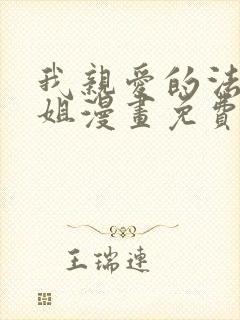 我親愛的法
姐漫畫免費
王瑞連